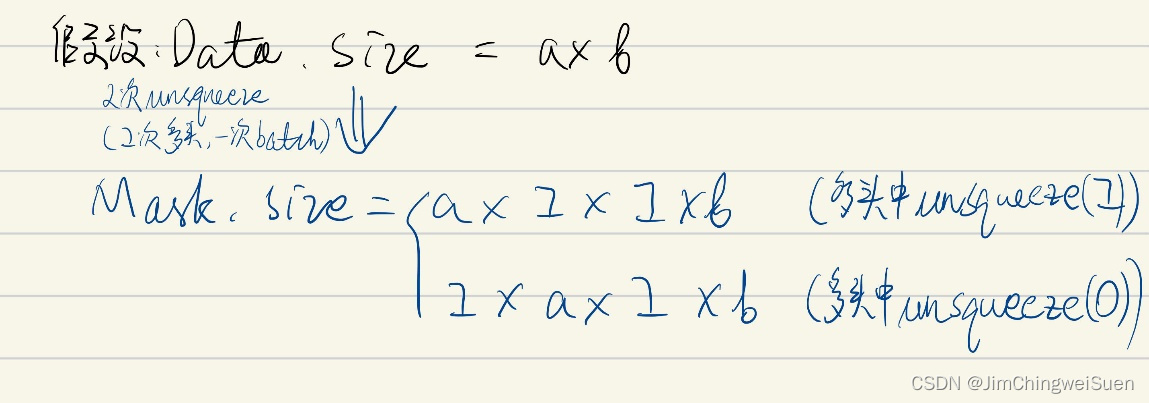 假设:Data.size = a×b
2次unsqueeze
(1次多头,一次batch)
Mask.size = { a × 1 × 1 × b (多头中unsqueeze(1))
1 × a × 1 × b (多头中unsqueeze(0))
CSDN @JimChingweiSuen